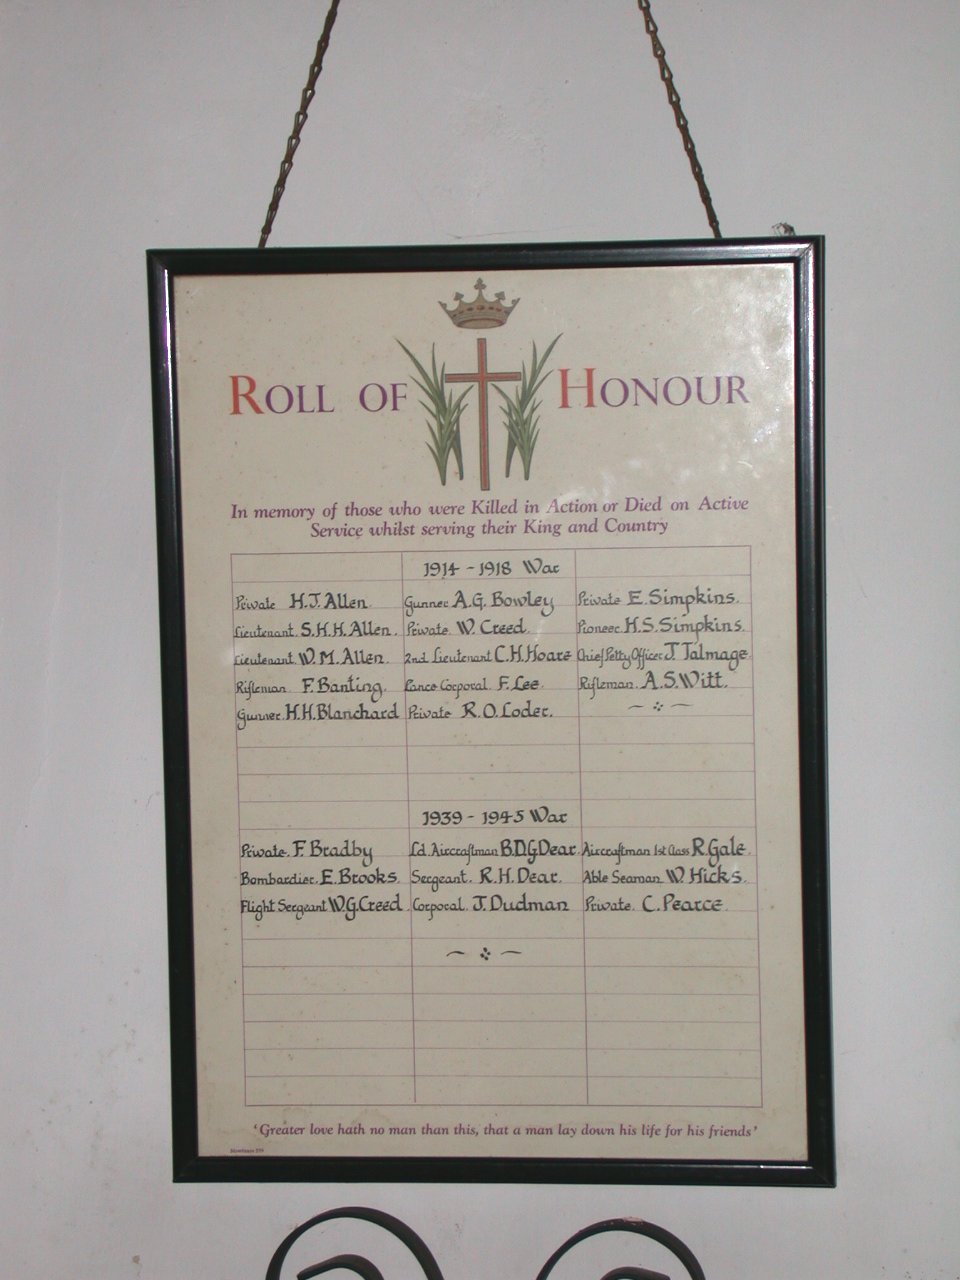 ROLL OF HONOUR
In memory of those who were Killed in Action or Died on Active
Service whilst serving their King and Country
1914 - 1918 War
Private H.J. Allen. Gunner A.G. Bowley Private E. Simpkins.
Lieutenant S.H.H. Allen. Private W. Creed. Pioneer H.S. Simpkins.
Lieutenant W.M. Allen. 2nd Lieutenant C.H. Hoare Chief Petty Officer J. Talmage.
Rifleman F. Banting. Lance Corporal F. Lee. Rifleman A.S. Witt.
Gunner H.H. Blanchard Private R.O. Loder.
1939 - 1945 War
Private F. Bradby Ld. Aircraftman B.D.G. Dear. Aircraftman 1st Class R. Gale.
Bombardier. E. Brooks. Sergeant. R.H. Dear. Able Seaman W. Hicks.
Flight Sergeant W.G. Creed. Corporal J. Dudman Private. C. Pearce.
'Greater love hath no man than this, that a man lay down his life for his friends'